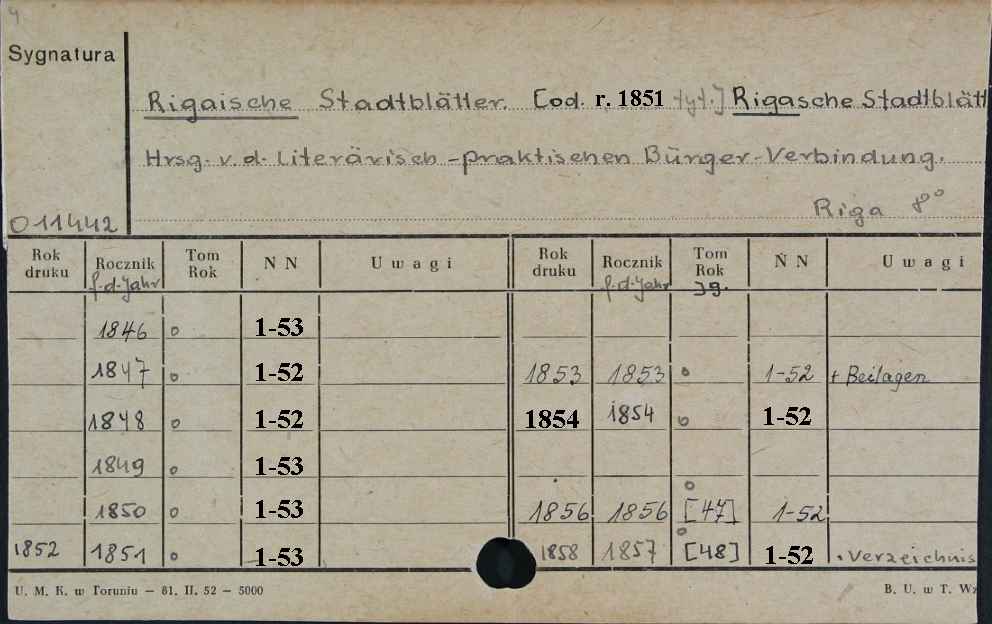 4
Sygnatura
Rigaische Stadtblätter. [od. r. 1851 tyt.] Rigasche Stadtblätt
Hrsg. v. d. Literärisch-praktischen Bürger-Verbindung.
Riga 8°
011442
Rok druku Rocznik f.d.Jahr Tom Rok N N Uwagi Rok druku Rocznik f.d.Jahr Tom Rok Jg. N N Uwagi
1846 o 1-53
1847 o 1-52 1853 1853 o 1-52 + Beilagen
1848 o 1-52 1854 1854 o 1-52
1849 o 1-53
1850 o 1-53 1856 1856 o [47] 1-52
1852 1851 o 1-53 1858 1857 o [48] 1-52 . Verzeichnis
U. M. K. w Toruniu – 61. II. 52 – 5000 B. U. w T. Wz